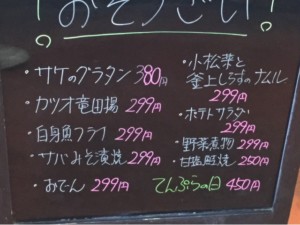 ！おそうざい！
・サケのグラタン 380円
・カツオ竜田揚 299円
・白身魚フライ 299円
・サバみそ漬焼 299円
・おでん 299円
・小松菜と
釜上しらすのナムル
299円
・ポテトサラダ
299円
・野菜煮物 299円
・甘塩鮭焼 250円
てんぷらの日 450円